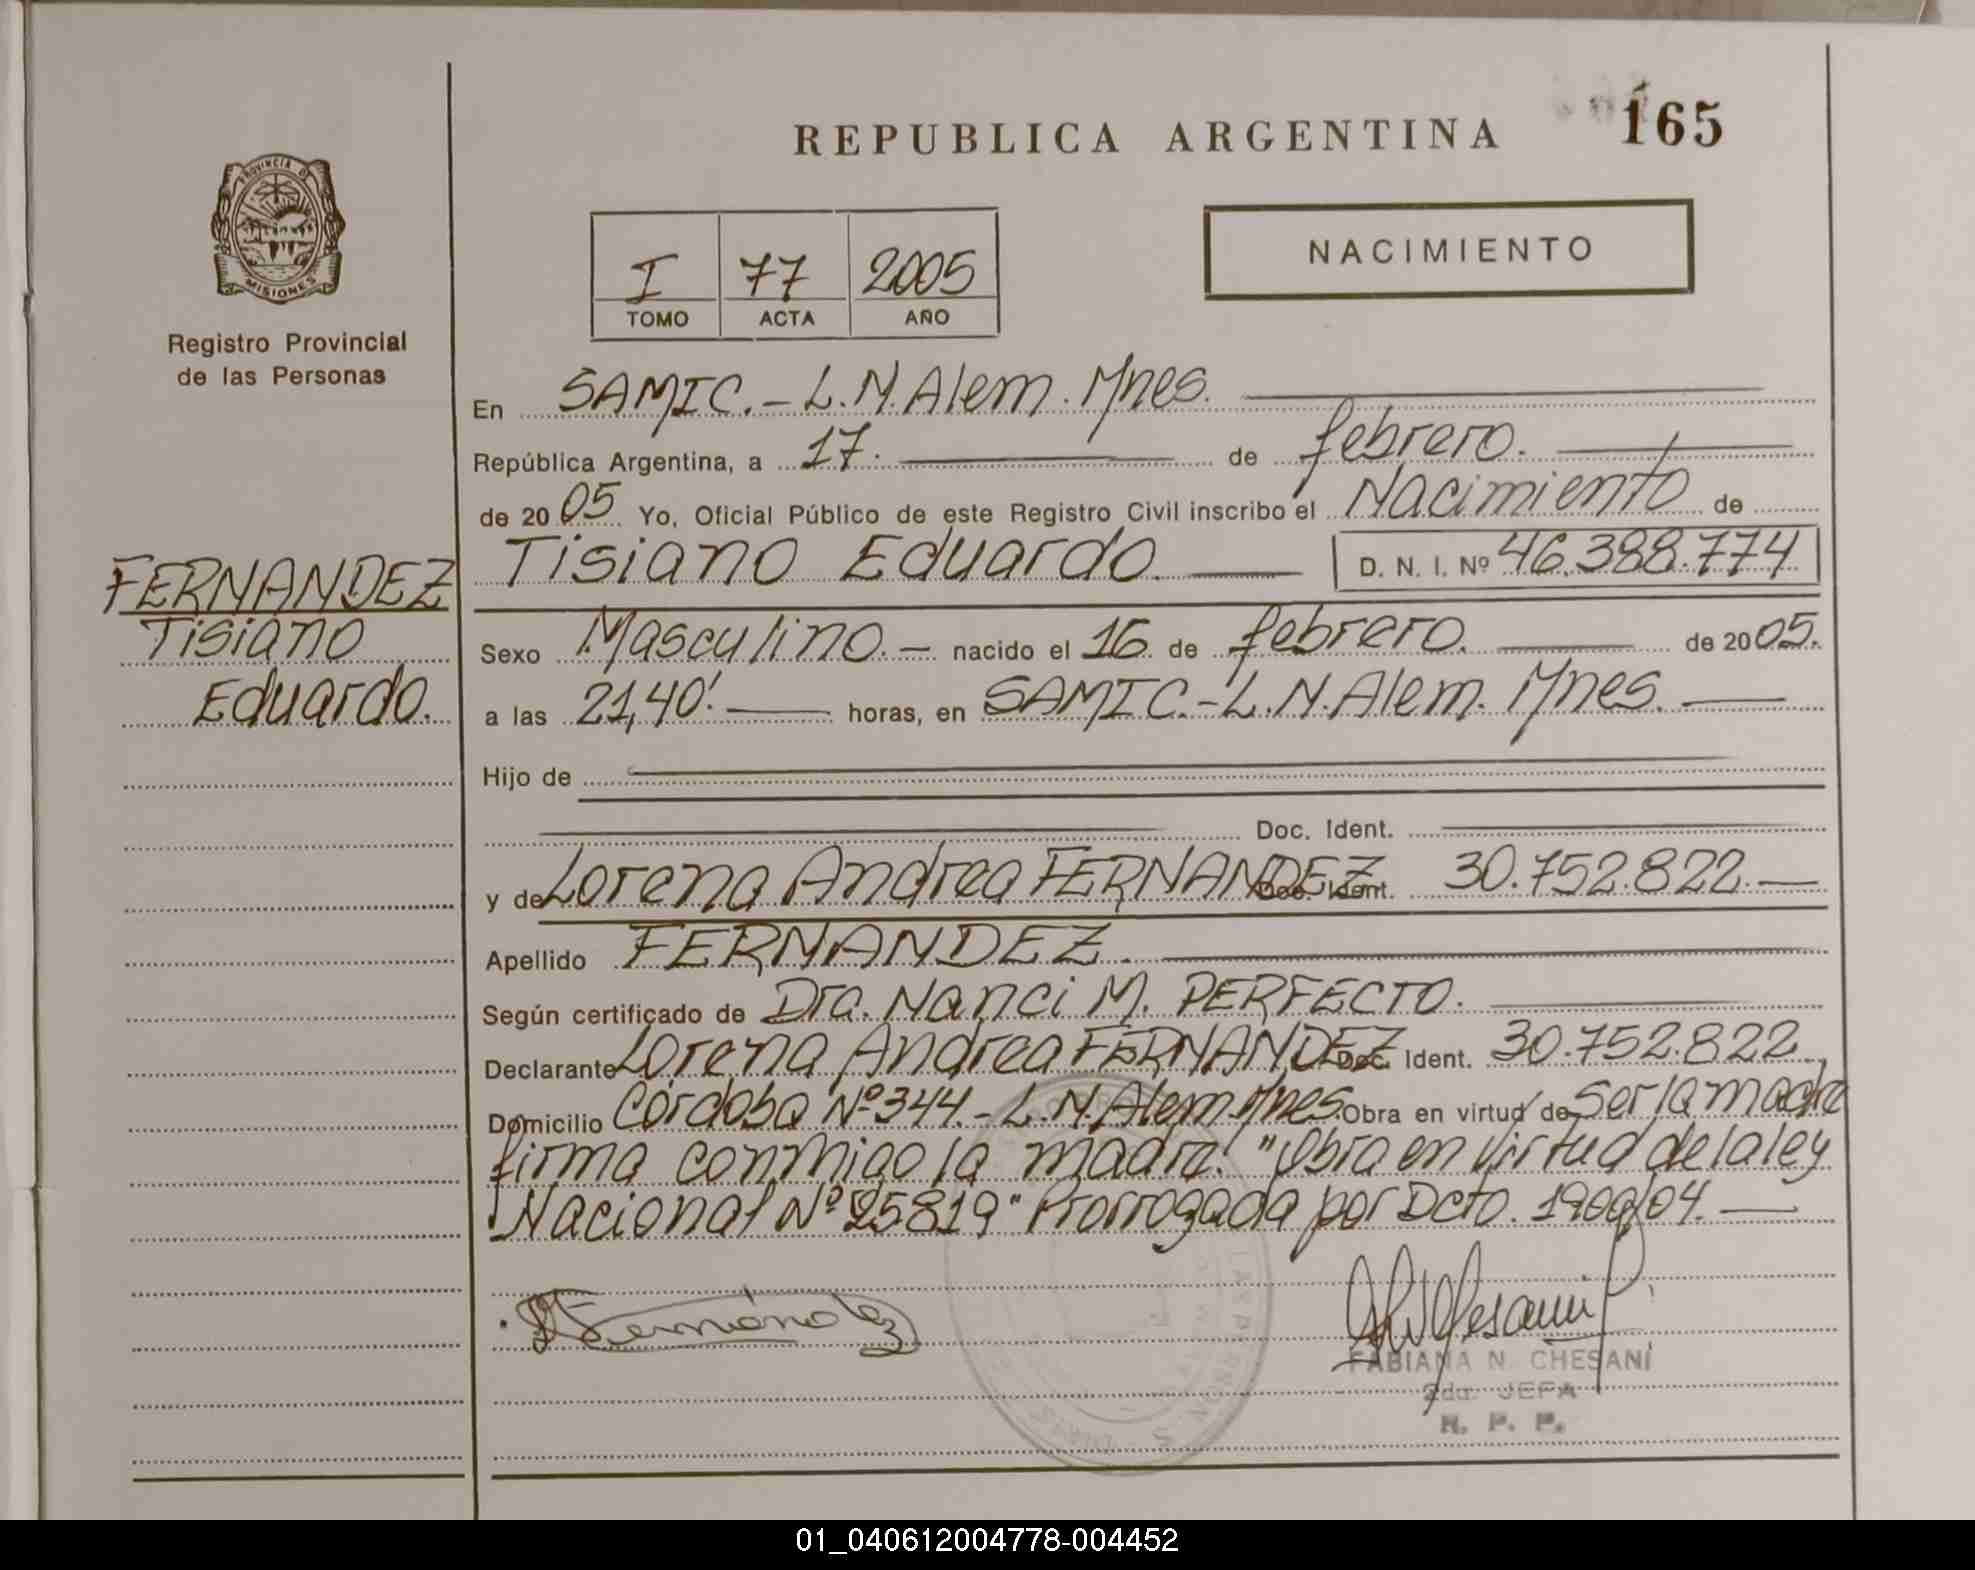 PROVINCIA DE
MISIONES
Registro Provincial
de las Personas
FERNANDEZ
Tisiano
Eduardo.
REPUBLICA ARGENTINA
165
I 77 2005
TOMO ACTA AÑO
NACIMIENTO
En SAMIC.- L.N.Alem. Mnes.
República Argentina, a 17. de febrero.
de 20 05 Yo, Oficial Público de este Registro Civil inscribo el Nacimiento de
Tisiano Eduardo. D. N. I. Nº 46.388.774
Sexo Masculino.- nacido el 16 de febrero. de 20 05.
a las 21,40'. horas, en SAMIC.-L.N.Alem. Mnes.
Hijo de
Doc. Ident.
y de Lorena Andrea FERNANDEZ Doc. Ident. 30.752.822.-
Apellido FERNANDEZ.
Según certificado de Dra. Nanci M. PERFECTO.
Declarante Lorena Andrea FERNANDEZ Doc. Ident. 30.752.822
Domicilio Córdoba Nº 344.- L.N.Alem.Mnes. Obra en virtud de Ser la madre
firma conmigo la madre. "Obra en virtud de la ley
Nacional Nº 25819" Prorrogada por Dcto. 1900/04.
Fernández
FABIANA N. CHESANI
2da. JEFA
R. P. P.
01_040612004778-004452